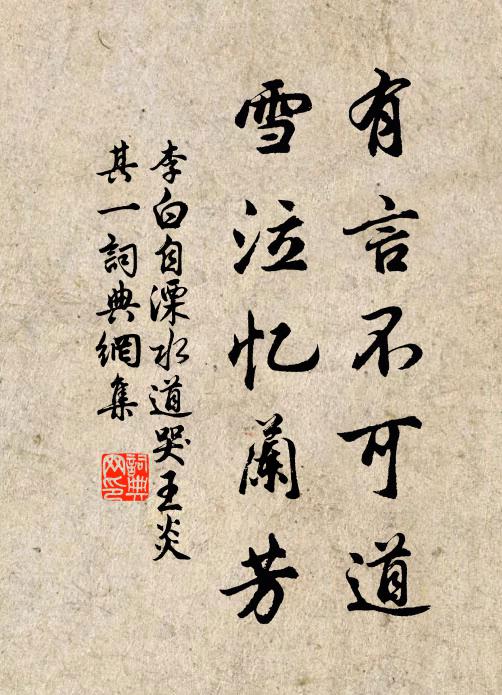 有言不可道
雪泣忆蘭芳
李白自溧水道哭王炎
其一詞典網集
詞典
网印